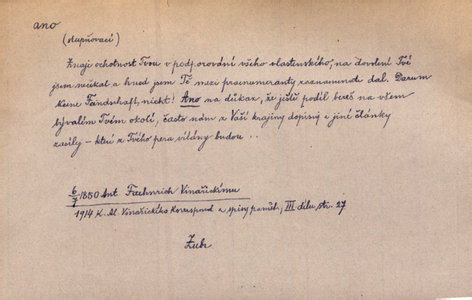 ano
(stupňovací)
Znaje ochotnost Tvou v podporování všeho vlastenského, na dovolení Tvé
jsem nečekal a hned jsem Tě mezi praenumeranty zaznamenati dal. Darum
keine Feindschaft, nicht! Ano na důkaz, že ještě podíl bereš na všem
bývalém Tvém okolí, často nám z Vaší krajiny dopisy a jiné články
zasílej – kteří z Tvého pera vítány budou ..
6/7 1850 Ant. Frähnrich Vinařickému
1914 K. Al. Vinařického Korespond. a spisy pamětn, III dílu, str. 27
Zubr